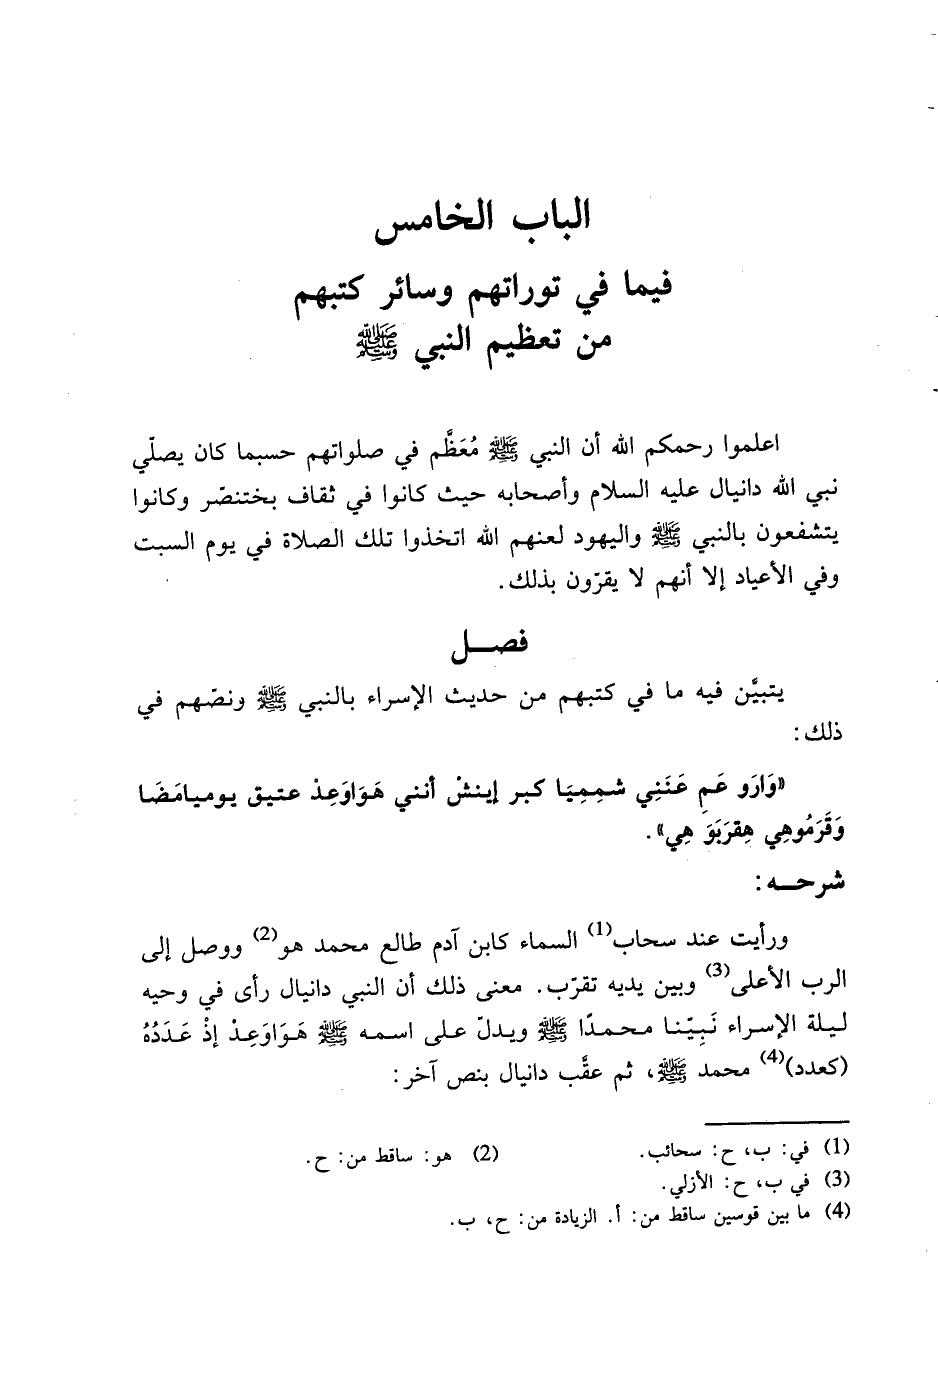 الباب الخامس
فيما في توراتهم وسائر كتبهم
من تعظيم النبي ﷺ
اعلموا رحمكم الله أن النبي ﷺ مُعَظَّم في صلواتهم حسبما كان يصلّي
نبي الله دانيال عليه السلام وأصحابه حيث كانوا في ثقاف بختنصّر وكانوا
يتشفعون بالنبي ﷺ واليهود لعنهم الله اتخذوا تلك الصلاة في يوم السبت
وفي الأعياد إلا أنهم لا يقرّون بذلك.
فصــل
يتبيَّن فيه ما في كتبهم من حديث الإسراء بالنبي ﷺ ونصّهم في
ذلك:
«وَارَو عَمِ عَنَنِي شمِمِيَا كبر إينشْ أنني هَوَاوَعِذْ عتيق يوميامَضَا
وَقَرَمُوهِي هِقرَبَوَ هِي».
شرحــه:
ورأيت عند سحاب(1) السماء كابن آدم طالع محمد هو(2) ووصل إلى
الرب الأعلى(3) وبين يديه تقرّب. معنى ذلك أن النبي دانيال رأى في وحيه
ليلة الإسراء نَبِيّنا محمدًا ﷺ ويدلّ على اسمه ﷺ هَوَاوَعِذْ إذْ عَدَدُهُ
(كعدد)(4) محمد ﷺ، ثم عقَّب دانيال بنص آخر:
(1) في: ب، ح: سحائب. (2) هو: ساقط من: ح.
(3) في ب، ح: الأزلي.
(4) ما بين قوسين ساقط من: أ. الزيادة من: ح، ب.